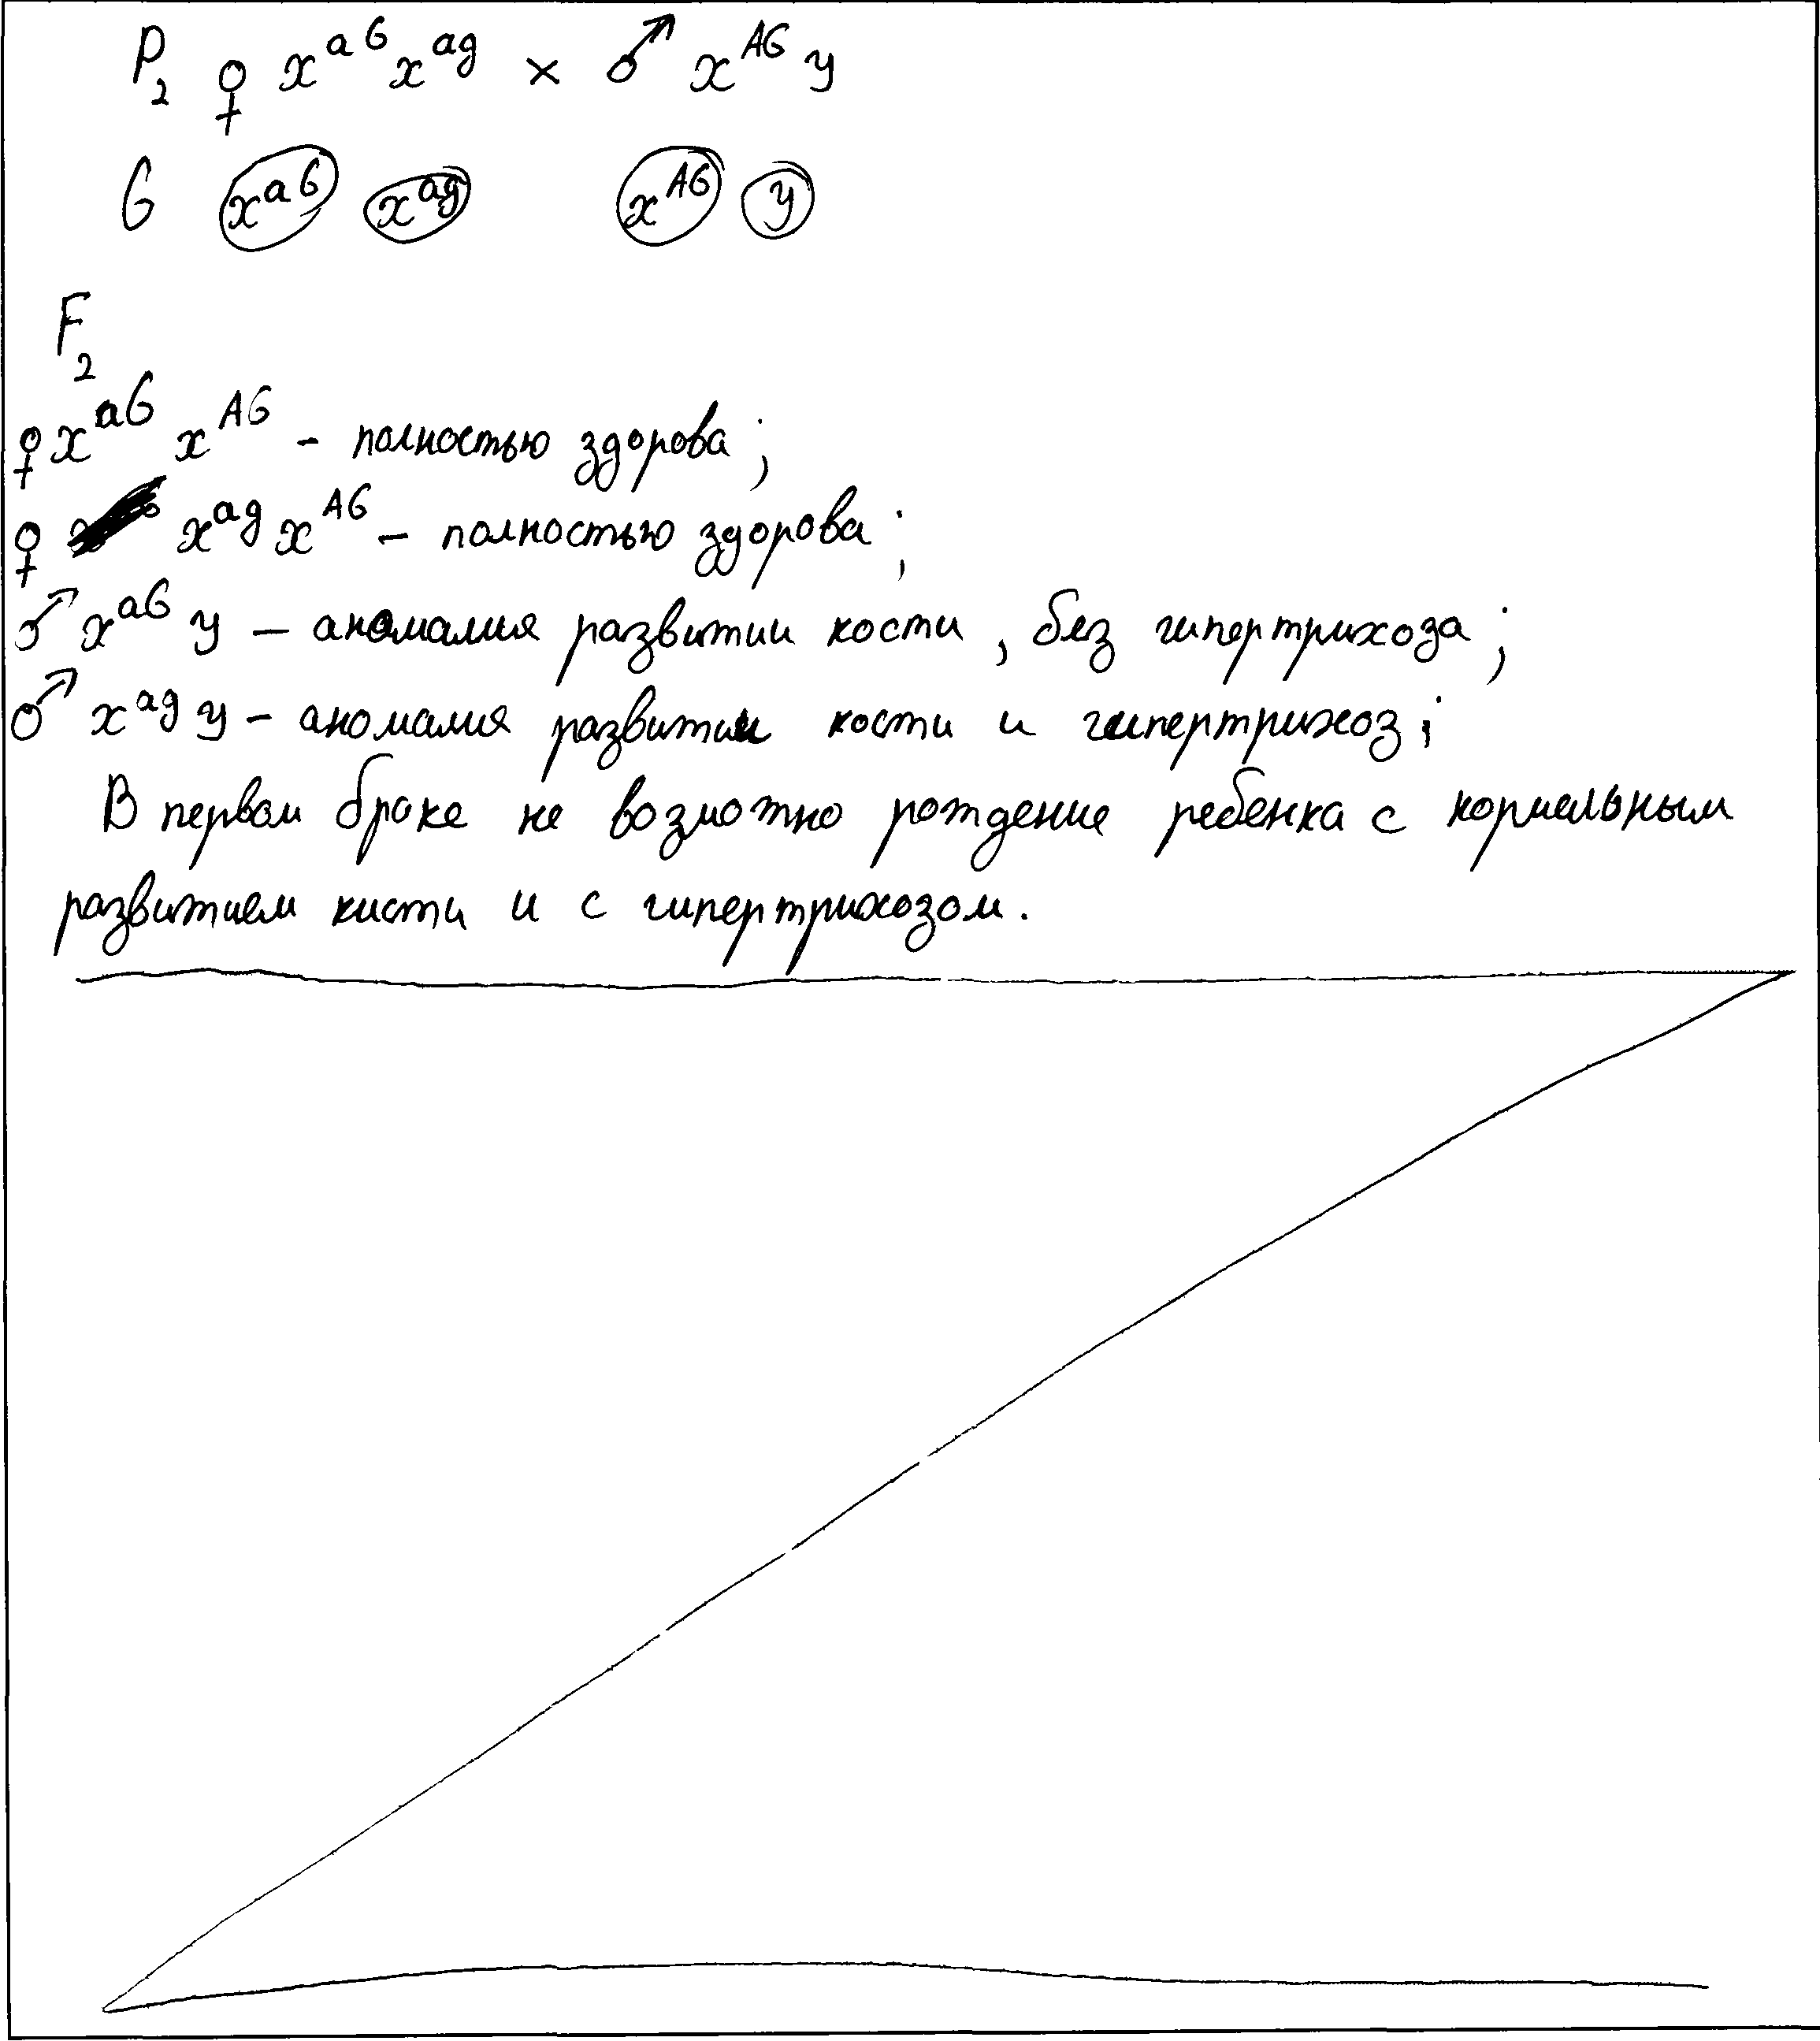 P₂ ♀ x^aG x^ag × ♂ x^AG y
G x^aG x^ag x^AG y
F₂
♀ x^aG x^AG – полностью здорова;
♀ x^ag x^AG – полностью здорова;
♂ x^aG y – аномалия развитии кости, без гипертрихоза;
♂ x^ag y – аномалия развитии кости и гипертрихоз;
В первом браке не возможно рождение ребенка с нормальным
развитием кисти и с гипертрихозом.